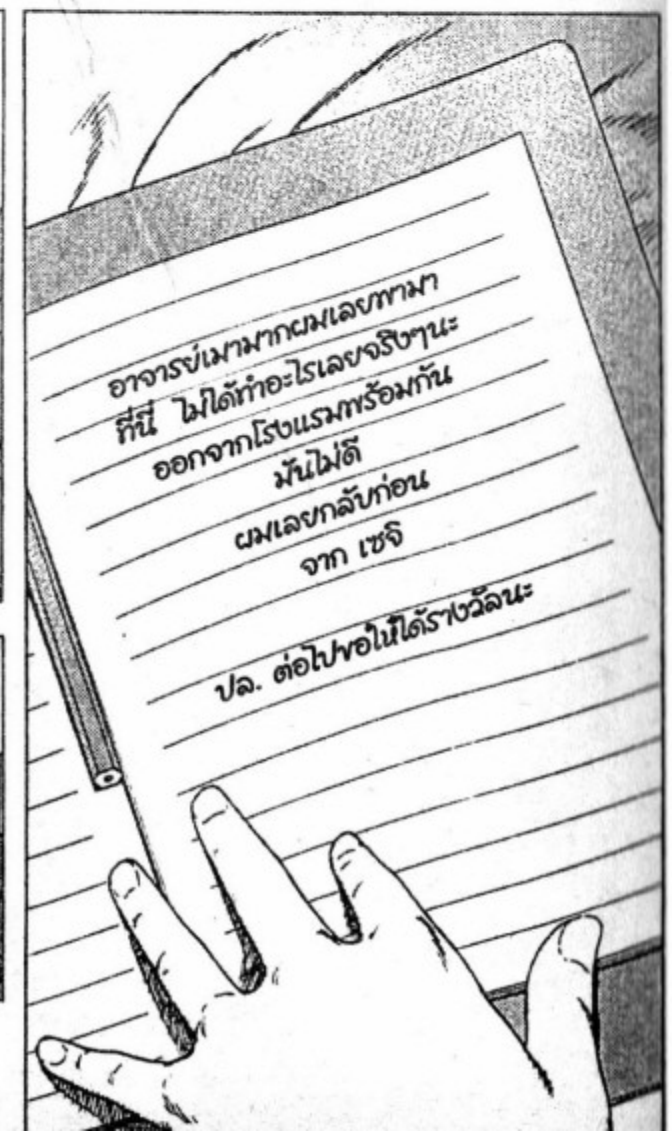 อาจารย์เมามากผมเลยพามา
ที่นี่ ไม่ได้ทำอะไรเลยจริงๆนะ
ออกจากโรงแรมพร้อมกัน
มันไม่ดี
ผมเลยกลับก่อน
จาก เซจิ
ปล. ต่อไปขอให้ได้รางวัลนะ